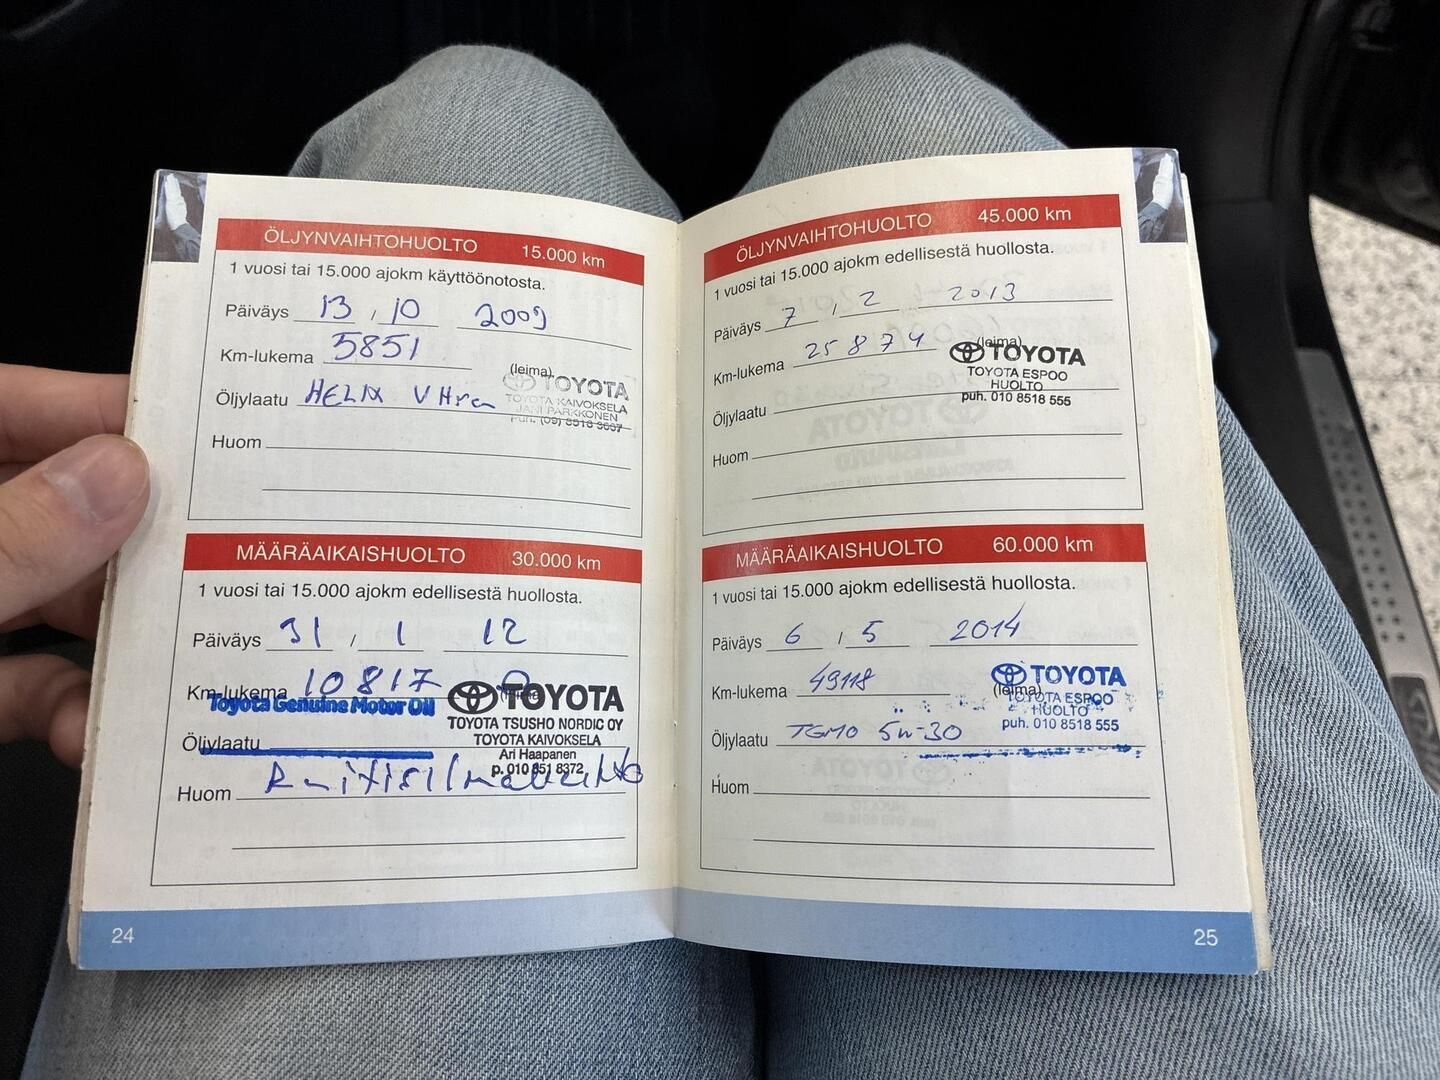 ÖLJYNVAIHTOHUOLTO 15.000 km
1 vuosi tai 15.000 ajokm käyttöönotosta.
Päiväys 13 , 10 2009
Km-lukema 5851
(leima)
TOYOTA
Öljylaatu HELIX
TOYOTA KAIVOKSELA
JANI PARKKONEN
puh. (09) 8518 3667
Huom
MÄÄRÄAIKAISHUOLTO 30.000 km
1 vuosi tai 15.000 ajokm edellisestä huollosta.
Päiväys 31 , 1 12
Km-lukema 10817
Toyota Genuine Motor Oil
TOYOTA
TOYOTA TSUSHO NORDIC OY
TOYOTA KAIVOKSELA
Ari Haapanen
p. 010 851 8372
Öljylaatu
Huom
24
ÖLJYNVAIHTOHUOLTO 45.000 km
1 vuosi tai 15.000 ajokm edellisestä huollosta.
Päiväys 7 , 2 2013
Km-lukema 25874
(leima)
TOYOTA
TOYOTA ESPOO
HUOLTO
puh. 010 8518 555
Öljylaatu
Huom
MÄÄRÄAIKAISHUOLTO 60.000 km
1 vuosi tai 15.000 ajokm edellisestä huollosta.
Päiväys 6 , 5 2014
Km-lukema 49118
(leima)
TOYOTA
TOYOTA ESPOO
HUOLTO
puh. 010 8518 555
Öljylaatu TGMO 5W-30
Huom
25